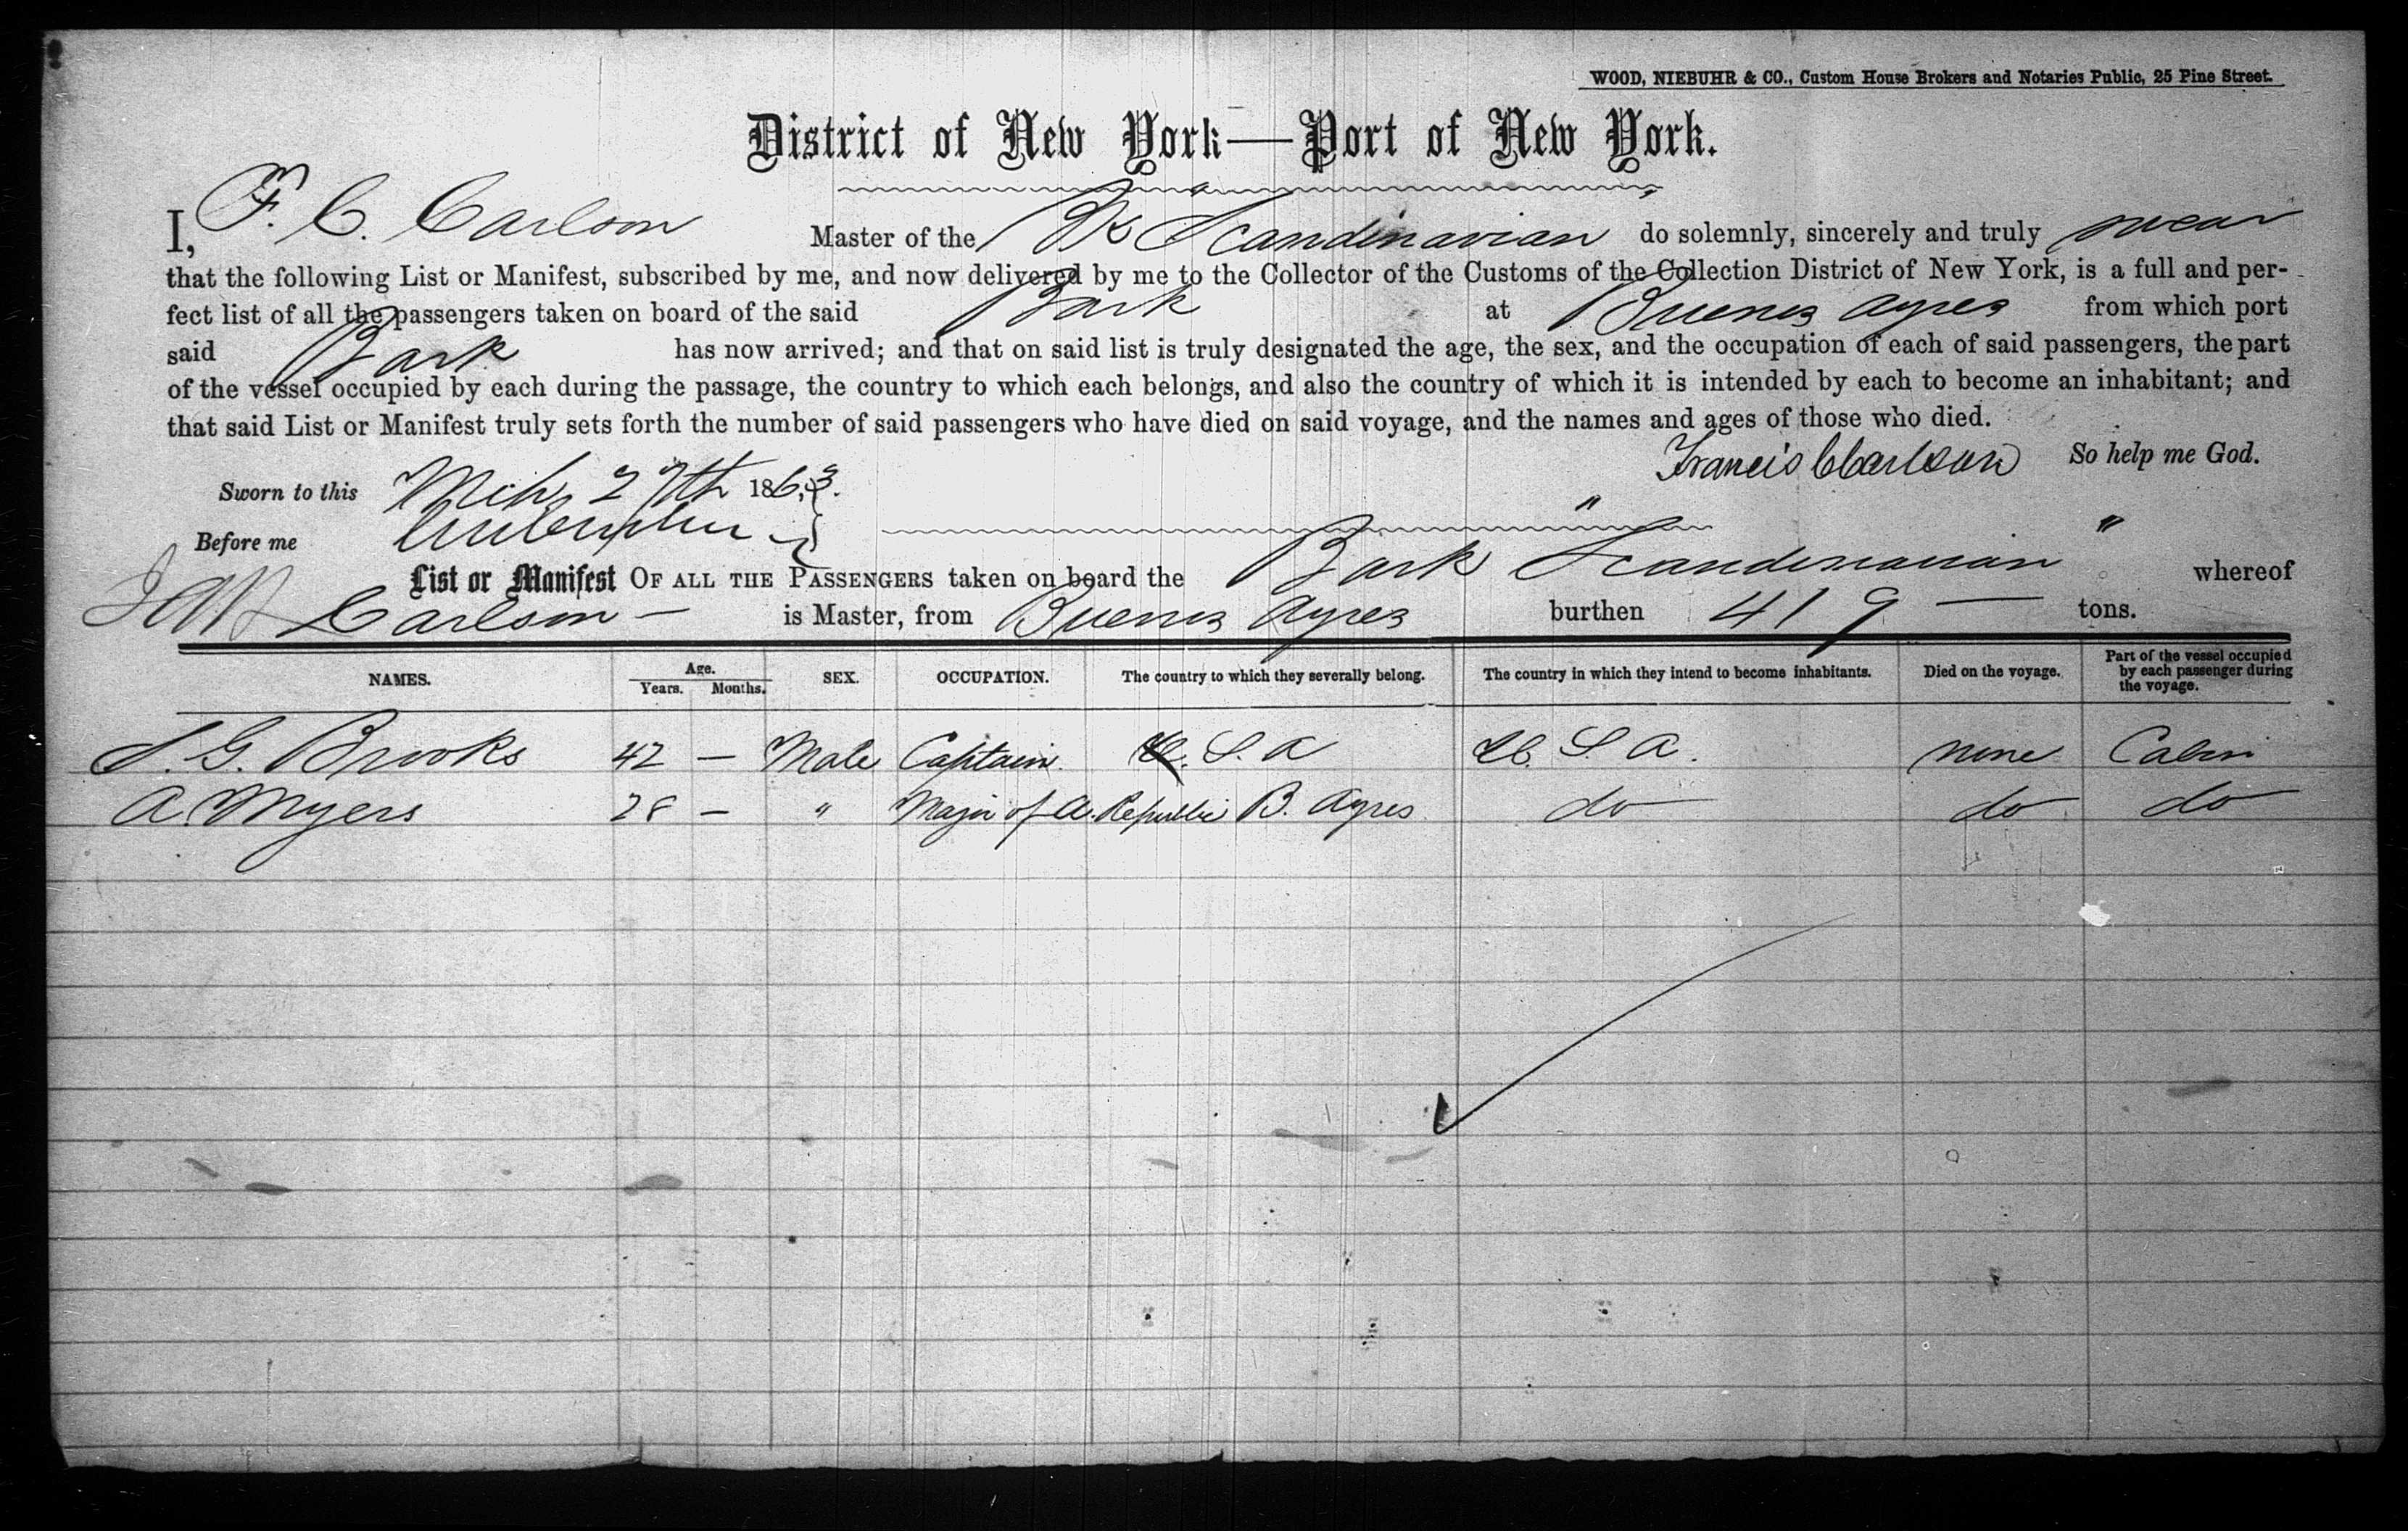 WOOD, NIEBUHR & CO., Custom House Brokers and Notaries Public, 25 Pine Street.
District of New York—Port of New York.
I, F. C. Carlson Master of the Bk "Scandinavian" do solemnly, sincerely and truly swear
that the following List or Manifest, subscribed by me, and now delivered by me to the Collector of the Customs of the Collection District of New York, is a full and per-
fect list of all the passengers taken on board of the said Bark at Buenos Ayres from which port
said Bark has now arrived; and that on said list is truly designated the age, the sex, and the occupation of each of said passengers, the part
of the vessel occupied by each during the passage, the country to which each belongs, and also the country of which it is intended by each to become an inhabitant; and
that said List or Manifest truly sets forth the number of said passengers who have died on said voyage, and the names and ages of those who died.
Francis C Carlson So help me God.
Sworn to this Mch 27th 1863.
Before me
List or Manifest OF ALL THE PASSENGERS taken on board the Bark "Scandinavian" whereof
Carlson — is Master, from Buenos Ayres burthen 419 — tons.
NAMES. Age. Years. Months. SEX. OCCUPATION. The country to which they severally belong. The country in which they intend to become inhabitants. Died on the voyage. Part of the vessel occupied by each passenger during the voyage.
S. G. Brooks 42 — Male Captain U. S. A U. S. A. none Cabin
A. Myers 28 — " Major of A. Republic B. Ayres do do do